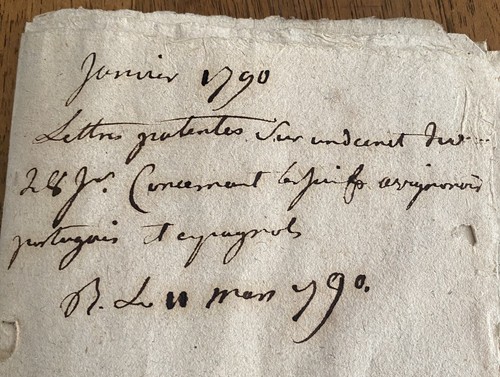 Janvier 1790
Lettres patentes Sur un decret du
28 Jer. Concernant les juifs avignonois
portugais et espagnols
R. Le 11 mars 1790.